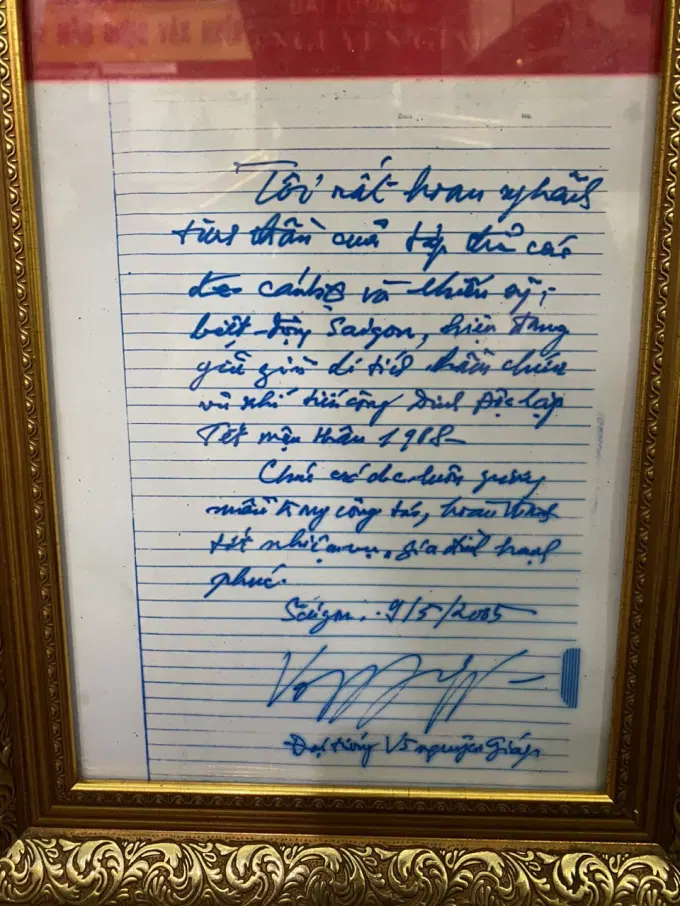 ĐẠI TƯỚNG
VÕ NGUYÊN GIÁP
Tôi rất hoan nghênh
tinh thần của tập thể các
đ/c cán bộ và chiến sỹ,
biệt động Saigon, hiện đang
giữ gìn di tích hầm chứa
vũ khí tiến công Dinh Độc lập
Tết mậu thân 1968-
Chúc các đ/c luôn
công tác, hoàn thành
tốt nhiệm vụ, gia đình hạnh
phúc.
Sàigon, 9/5/2005
Đại tướng Võ nguyên Giáp